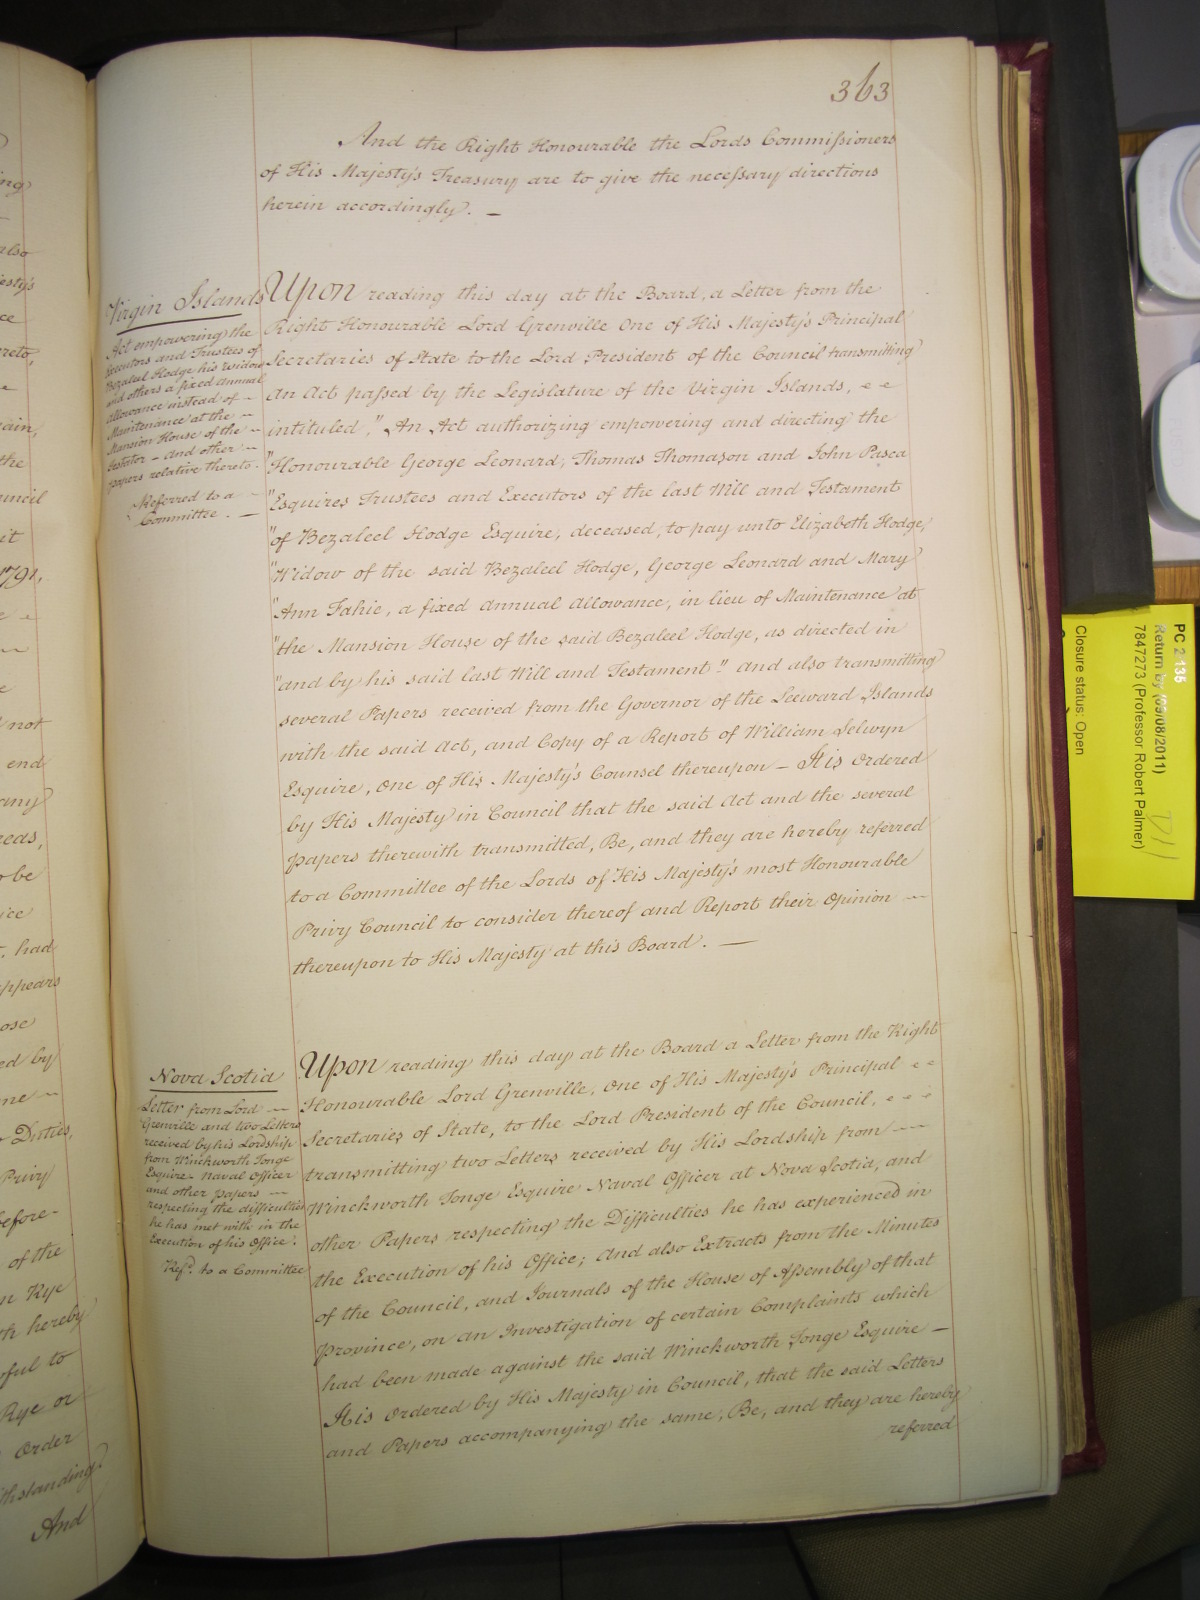 363
And the Right Honourable the Lords Commissioners
of His Majesty's Treasury are to give the necessary directions
herein accordingly. —
Virgin Islands
Act empowering the
Executors and Trustees of
Bezaleel Hodge his Widow
and others a fixed annual
Allowance instead of
Maintenance at the
Mansion House of the
Testator - and other
papers relative thereto.
Referred to a
Committee. —
Upon reading this day at the Board, a Letter from the
Right Honourable Lord Grenville One of His Majesty's Principal
Secretaries of State to the Lord President of the Council transmitting
an Act passed by the Legislature of the Virgin Islands,
intituled, "An Act authorizing empowering and directing the
"Honourable George Leonard, Thomas Thomason and John Pasea
"Esquires Trustees and Executors of the last Will and Testament
"of Bezaleel Hodge Esquire, deceased, to pay unto Elizabeth Hodge,
"Widow of the said Bezaleel Hodge, George Leonard and Mary
"Ann Fahie, a fixed annual Allowance, in lieu of Maintenance at
"the Mansion House of the said Bezaleel Hodge, as directed in
"and by his said last Will and Testament" And also transmitting
several Papers received from the Governor of the Leeward Islands
with the said Act, and Copy of a Report of William Selwyn
Esquire, One of His Majesty's Counsel thereupon — It is Ordered
by His Majesty in Council that the said Act and the several
papers therewith transmitted, Be, and they are hereby referred
to a Committee of the Lords of His Majesty's most Honourable
Privy Council to consider thereof and Report their Opinion
thereupon to His Majesty at this Board. —
Nova Scotia
Letter from Lord
Grenville and two Letters
received by his Lordship
from Winckworth Tonge
Esquire Naval Officer
and other papers
respecting the difficulties
he has met with in the
Execution of his Office.
Refd. to a Committee
Upon reading this day at the Board a Letter from the Right
Honourable Lord Grenville, One of His Majesty's Principal
Secretaries of State, to the Lord President of the Council,
transmitting two Letters received by His Lordship from
Winckworth Tonge Esquire Naval Officer at Nova Scotia, and
other Papers respecting the Difficulties he has experienced in
the Execution of his Office; And also Extracts from the Minutes
of the Council, and Journals of the House of Assembly of that
Province, on an Investigation of certain Complaints which
had been made against the said Winckworth Tonge Esquire —
It is Ordered by His Majesty in Council, that the said Letters
and Papers accompanying the same, Be, and they are hereby
referred
also
1791,
the
it
not
end
any
had
of the
hereby
Rye or
Order
And
PC 2 135
Return by (09/08/2011)
7847273 (Professor Robert Palmer)
Closure status: Open